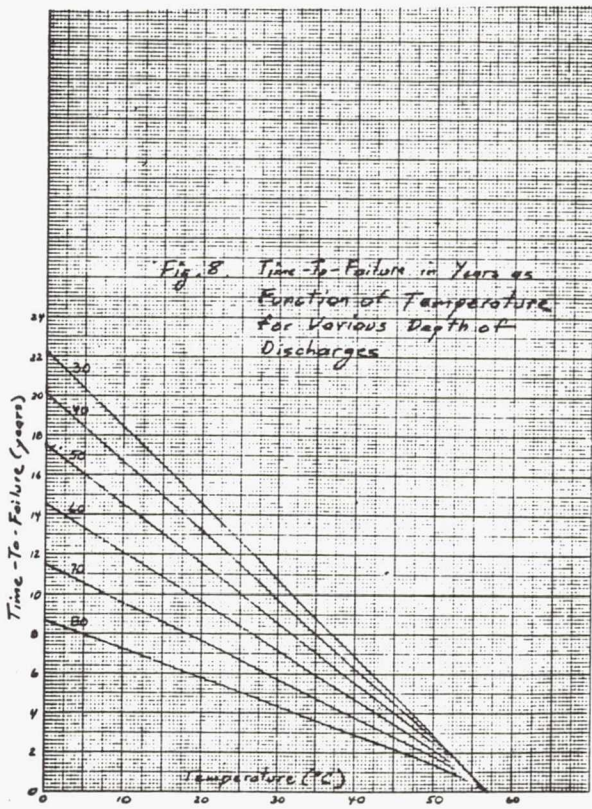 Fig. 8. Time-To-Failure in Years as
Function of Temperature
for Various Depth of
Discharges
Time-To-Failure (years)
24
22
20
18
16
14
12
10
8
6
4
2
0
30
40
50
60
70
80
Temperature (°C)
0 10 20 30 40 50 60